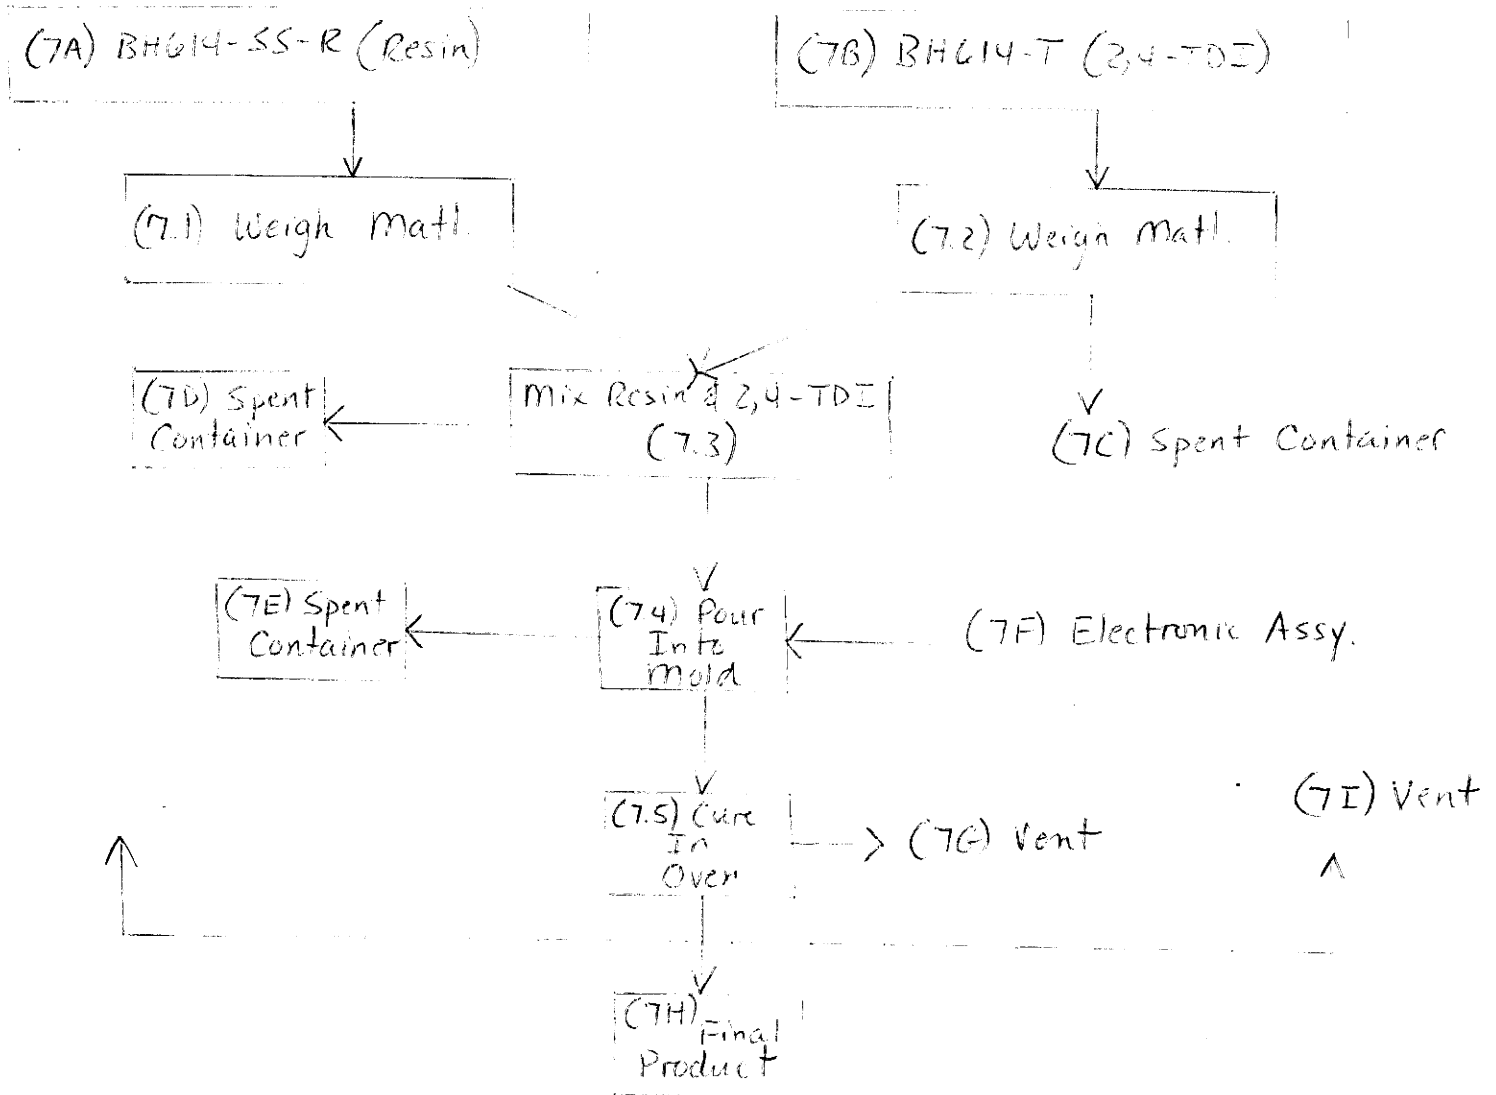 (7A) BH614-SS-R (Resin)
(7B) BH614-T (2,4-TDI)
(7.1) Weigh Matl.
(7.2) Weigh Matl.
(7D) Spent
Container
Mix Resin & 2,4-TDI
(7.3)
(7C) Spent Container
(7E) Spent
Container
(7.4) Pour
Into
Mold
(7F) Electronic Assy.
(7.5) Cure
In
Oven
(7G) Vent
(7I) Vent
(7H) Final
Product